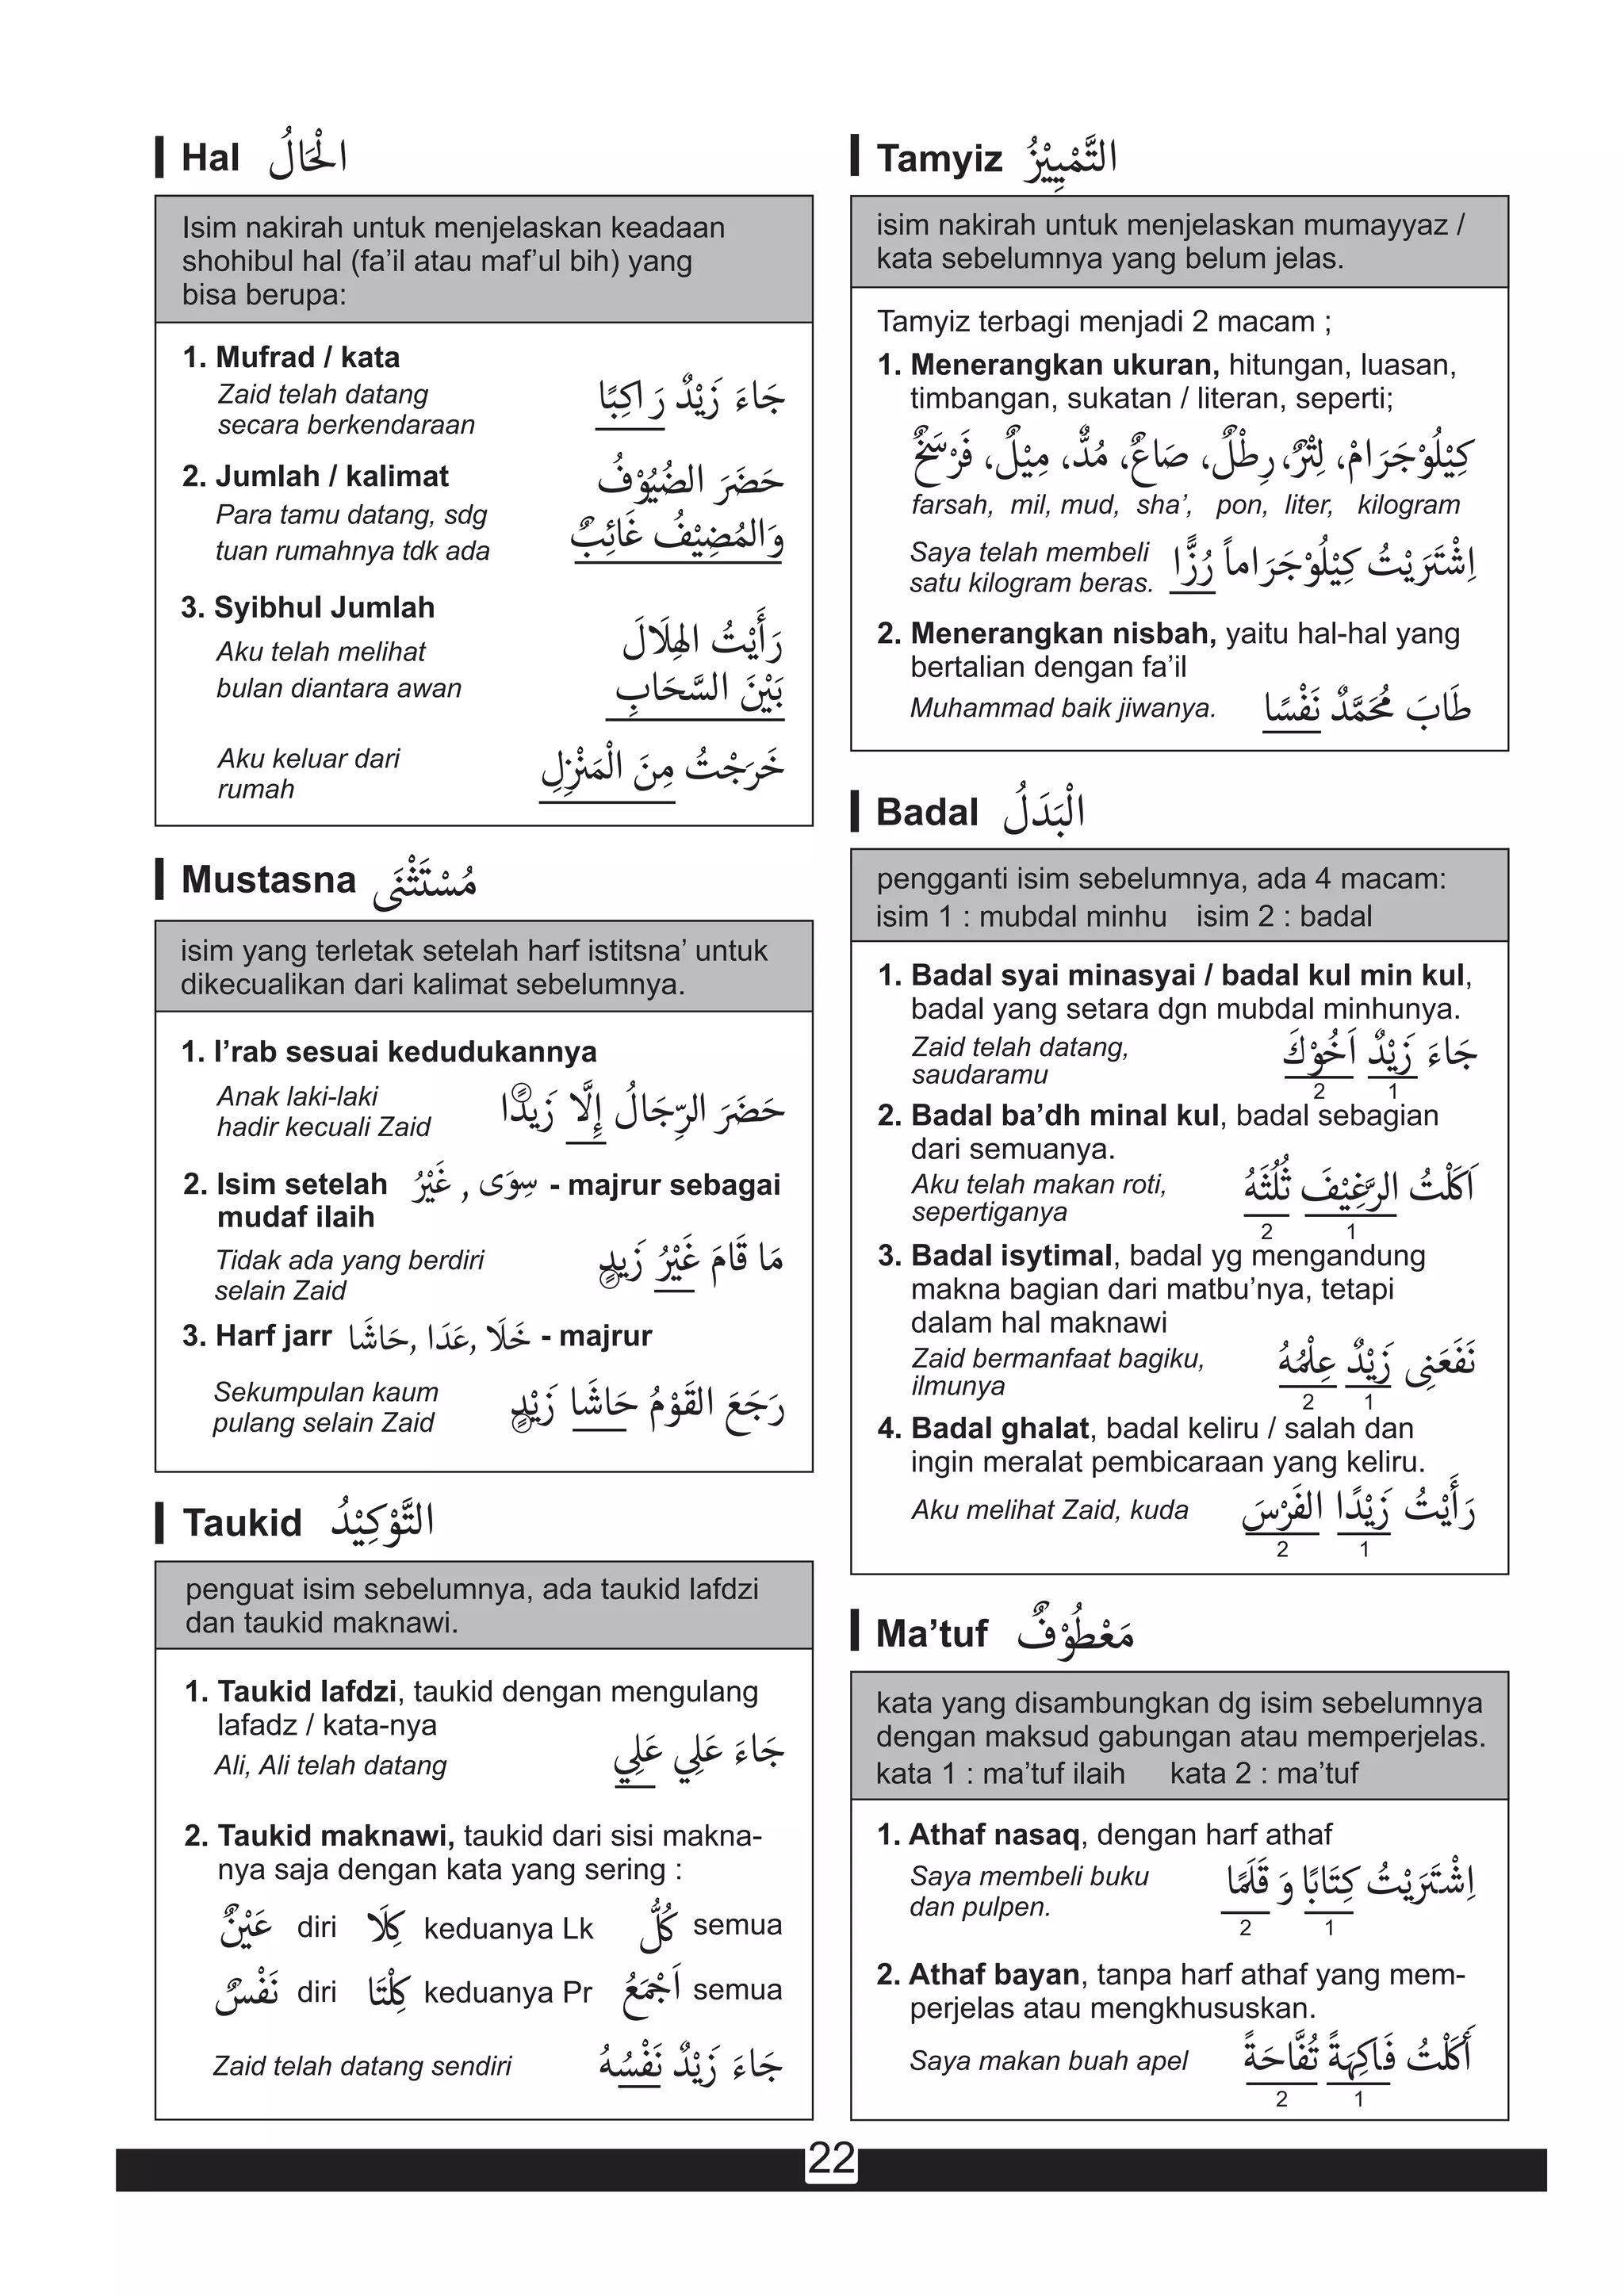 Hal الْحَالُ
Isim nakirah untuk menjelaskan keadaan
shohibul hal (fa’il atau maf’ul bih) yang
bisa berupa:
1. Mufrad / kata
Zaid telah datang
secara berkendaraan
جَاءَ زَيْدٌ رَاكِبًا
2. Jumlah / kalimat
Para tamu datang, sdg
tuan rumahnya tdk ada
حَضَرَ الضُيُوْفُ
وَالمُضِيْفُ غَائِبٌ
3. Syibhul Jumlah
Aku telah melihat
bulan diantara awan
رَأَيْتُ الهِلَالَ
بَيْنَ السَّحَابِ
Aku keluar dari
rumah
خَرَجْتُ مِنَ الْمَنْزِلِ
Mustasna مُسْتَثْنَى
isim yang terletak setelah harf istitsna’ untuk
dikecualikan dari kalimat sebelumnya.
1. I’rab sesuai kedudukannya
Anak laki-laki
hadir kecuali Zaid
حَضَرَ الرِّجَالُ إِلَّا زَيدًا
2. Isim setelah غَيْرُ , سِوَى - majrur sebagai
mudaf ilaih
Tidak ada yang berdiri
selain Zaid
مَا قَامَ غَيْرُ زَيدٍ
3. Harf jarr حَاشَا, عَدَا, خَلَا - majrur
Sekumpulan kaum
pulang selain Zaid
رَجَعَ القَوْمُ حَاشَا زَيْدٍ
Taukid التَّوْكِيْدُ
penguat isim sebelumnya, ada taukid lafdzi
dan taukid maknawi.
1. Taukid lafdzi, taukid dengan mengulang
lafadz / kata-nya
Ali, Ali telah datang
جَاءَ عَلِي عَلِي
2. Taukid maknawi, taukid dari sisi makna-
nya saja dengan kata yang sering :
عَيْنٌ diri كِلَا keduanya Lk كُلُّ semua
نَفْسٌ diri كِلْتَا keduanya Pr اَجْمَعُ semua
Zaid telah datang sendiri جَاءَ زَيْدٌ نَفْسُهُ
Tamyiz التَّمْيِيْزُ
isim nakirah untuk menjelaskan mumayyaz /
kata sebelumnya yang belum jelas.
Tamyiz terbagi menjadi 2 macam ;
1. Menerangkan ukuran, hitungan, luasan,
timbangan, sukatan / literan, seperti;
كِيْلُوْجَرَامْ، لِتْرٌ، رِطْلٌ، صَاعٌ، مُدٌّ، مِيْلٌ، فَرْسَخٌ
farsah, mil, mud, sha’, pon, liter, kilogram
Saya telah membeli
satu kilogram beras.
اِشْتَرَيْتُ كِيْلُوْجَرَاماً رُزًّا
2. Menerangkan nisbah, yaitu hal-hal yang
bertalian dengan fa’il
Muhammad baik jiwanya. طَابَ مُحَمَّدٌ نَفْسًا
Badal الْبَدَلُ
pengganti isim sebelumnya, ada 4 macam:
isim 1 : mubdal minhu isim 2 : badal
1. Badal syai minasyai / badal kul min kul,
badal yang setara dgn mubdal minhunya.
Zaid telah datang,
saudaramu
جَاءَ زَيْدٌ اَخُوْكَ
2 1
2. Badal ba’dh minal kul, badal sebagian
dari semuanya.
Aku telah makan roti,
sepertiganya
اَكَلْتُ الرَّغِيْفَ ثُلُثَهُ
2 1
3. Badal isytimal, badal yg mengandung
makna bagian dari matbu’nya, tetapi
dalam hal maknawi
Zaid bermanfaat bagiku,
ilmunya
نَفَعَنِى زَيْدٌ عِلْمُهُ
2 1
4. Badal ghalat, badal keliru / salah dan
ingin meralat pembicaraan yang keliru.
Aku melihat Zaid, kuda رَأَيْتُ زَيْدًا الفَرْسَ
2 1
Ma’tuf مَعْطُوْفٌ
kata yang disambungkan dg isim sebelumnya
dengan maksud gabungan atau memperjelas.
kata 1 : ma’tuf ilaih kata 2 : ma’tuf
1. Athaf nasaq, dengan harf athaf
Saya membeli buku
dan pulpen.
اِشْتَرَيْتُ كِتَابًا وَ قَلَمًا
2 1
2. Athaf bayan, tanpa harf athaf yang mem-
perjelas atau mengkhususkan.
Saya makan buah apel أَكَلْتُ فَاكِهَةً تُفَّاحَةً
2 1
22